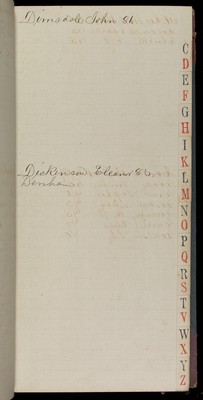 Dimsdale John H.
Dickenson Eleanor E.
Denham
C
D
E
F
G
H
I
K
L
M
N
O
P
Q
R
S
T
V
W
X
Y
Z